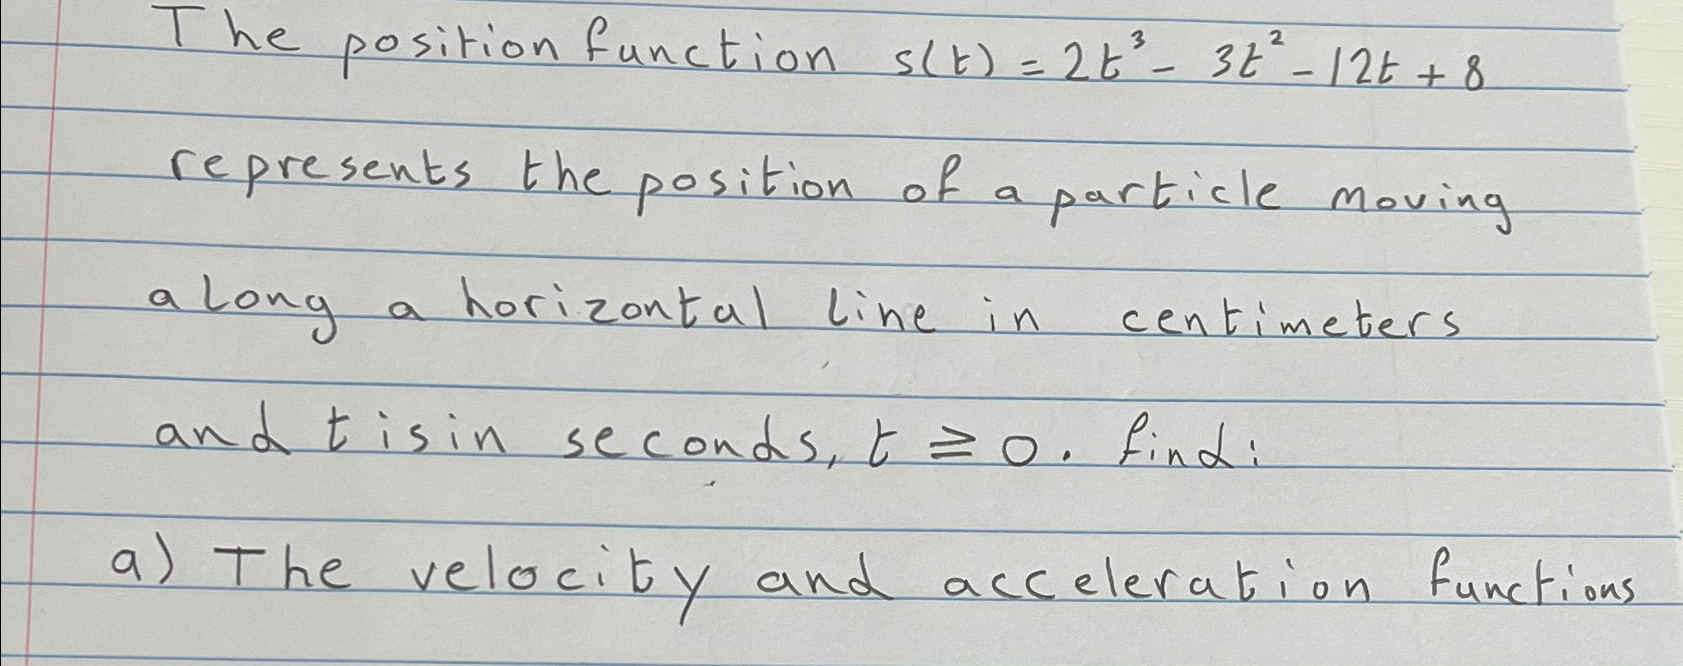 The position function s(t) = 2t³ - 3t² - 12t + 8
represents the position of a particle moving
along a horizontal line in centimeters
and t is in seconds, t ≥ 0. find:
a) The velocity and acceleration functions